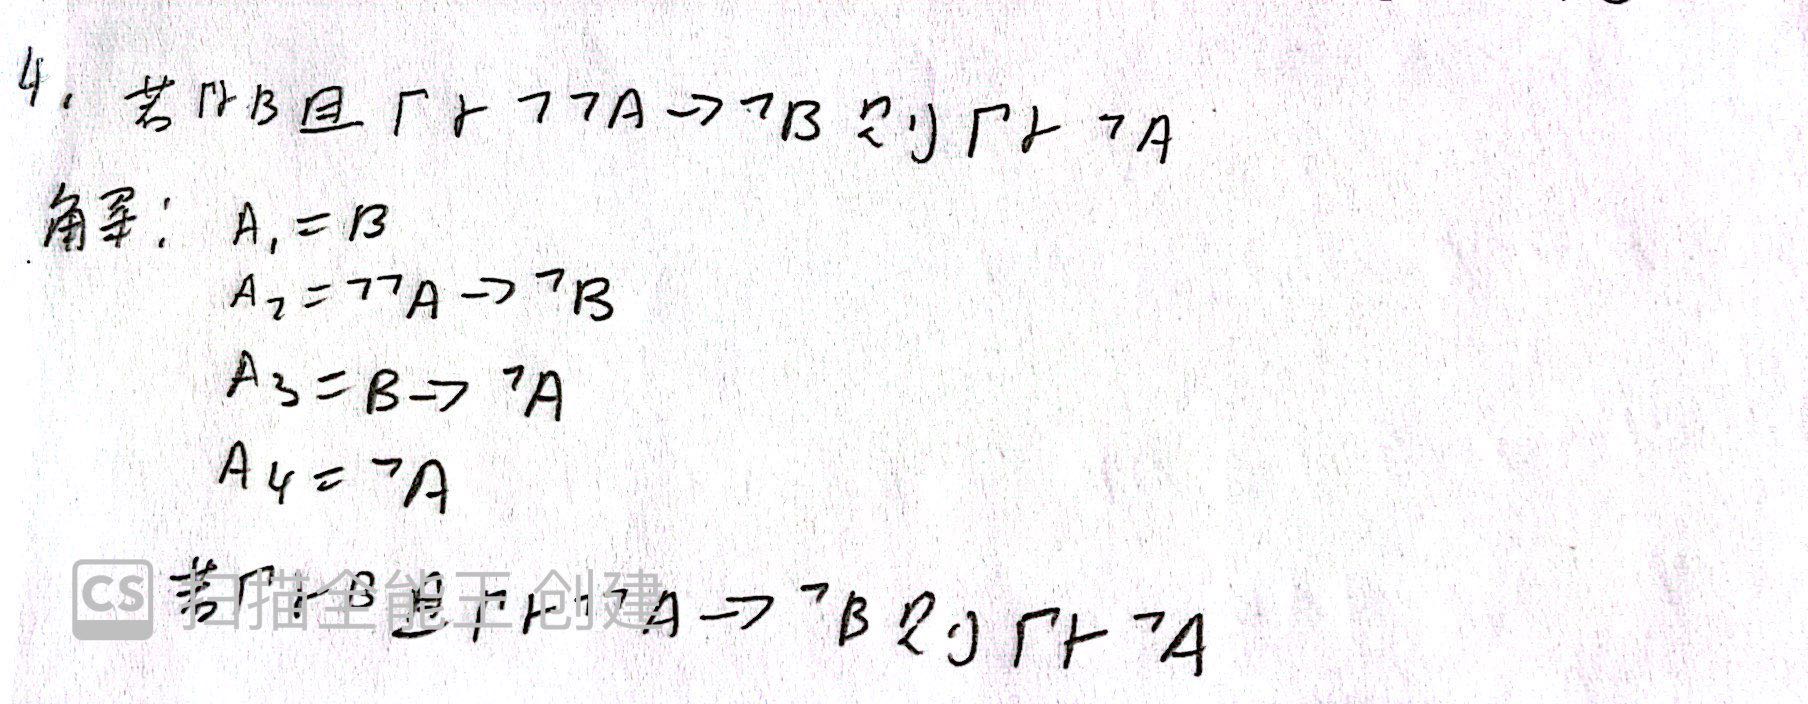 4. 若Γ⊢B且Γ⊢¬¬A→¬B则Γ⊢¬A
解: A₁=B
A₂=¬¬A→¬B
A₃=B→¬A
A₄=¬A
若Γ⊢B且Γ⊢¬¬A→¬B则Γ⊢¬A
CS 扫描全能王 创建